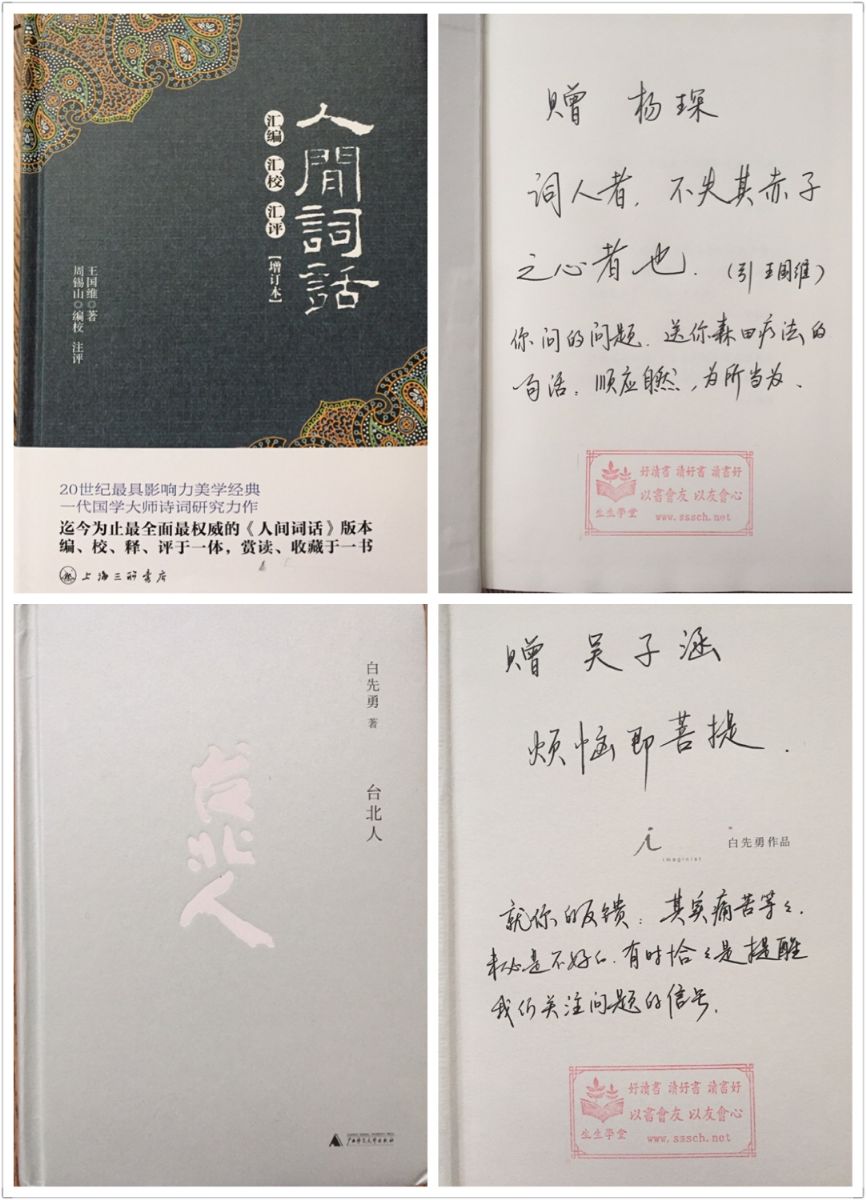 人間詞話
汇编 汇校 汇评
【增订本】
王国维◎著
周锡山◎编校 注评
20世纪最具影响力美学经典
一代国学大师诗词研究力作
迄今为止最全面最权威的《人间词话》版本
编、校、释、评于一体，赏读、收藏于一书
上海三联书店
赠 杨琛
词人者，不失其赤子
之心者也．（引王国维）
你问的问题．送你森田疗法的
句话：顺应自然，为所当为．
好讀書 讀好書 讀書好
以書會友 以友會心
生生學堂 www.sssch.net
白先勇 著
台北人
台北人
广西师范大学出版社
赠 吴子涵
烦恼即菩提．
i
imaginist
白先勇作品
就你的反馈：其实痛苦等々．
未必是不好的．有时恰々是提醒
我们关注问题的信号．
好讀書 讀好書 讀書好
以書會友 以友會心
生生學堂 www.sssch.net